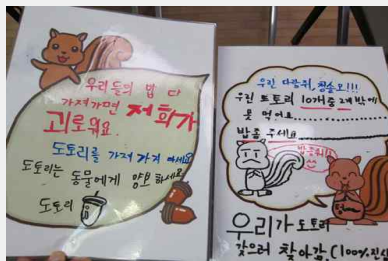 우리들의 밥 다
가져가면 저희가
괴로워요.
도토리를 가져 가지 마세요
도토리는 동물에게 양보하세요
도토리
우린 다람쥐, 청솔모!!!
우린 도토리 10개 중 2개 밖에
못 먹어요
밥 좀 주세요
우리가 도토리
갖으러 찾아감. (100% 진심